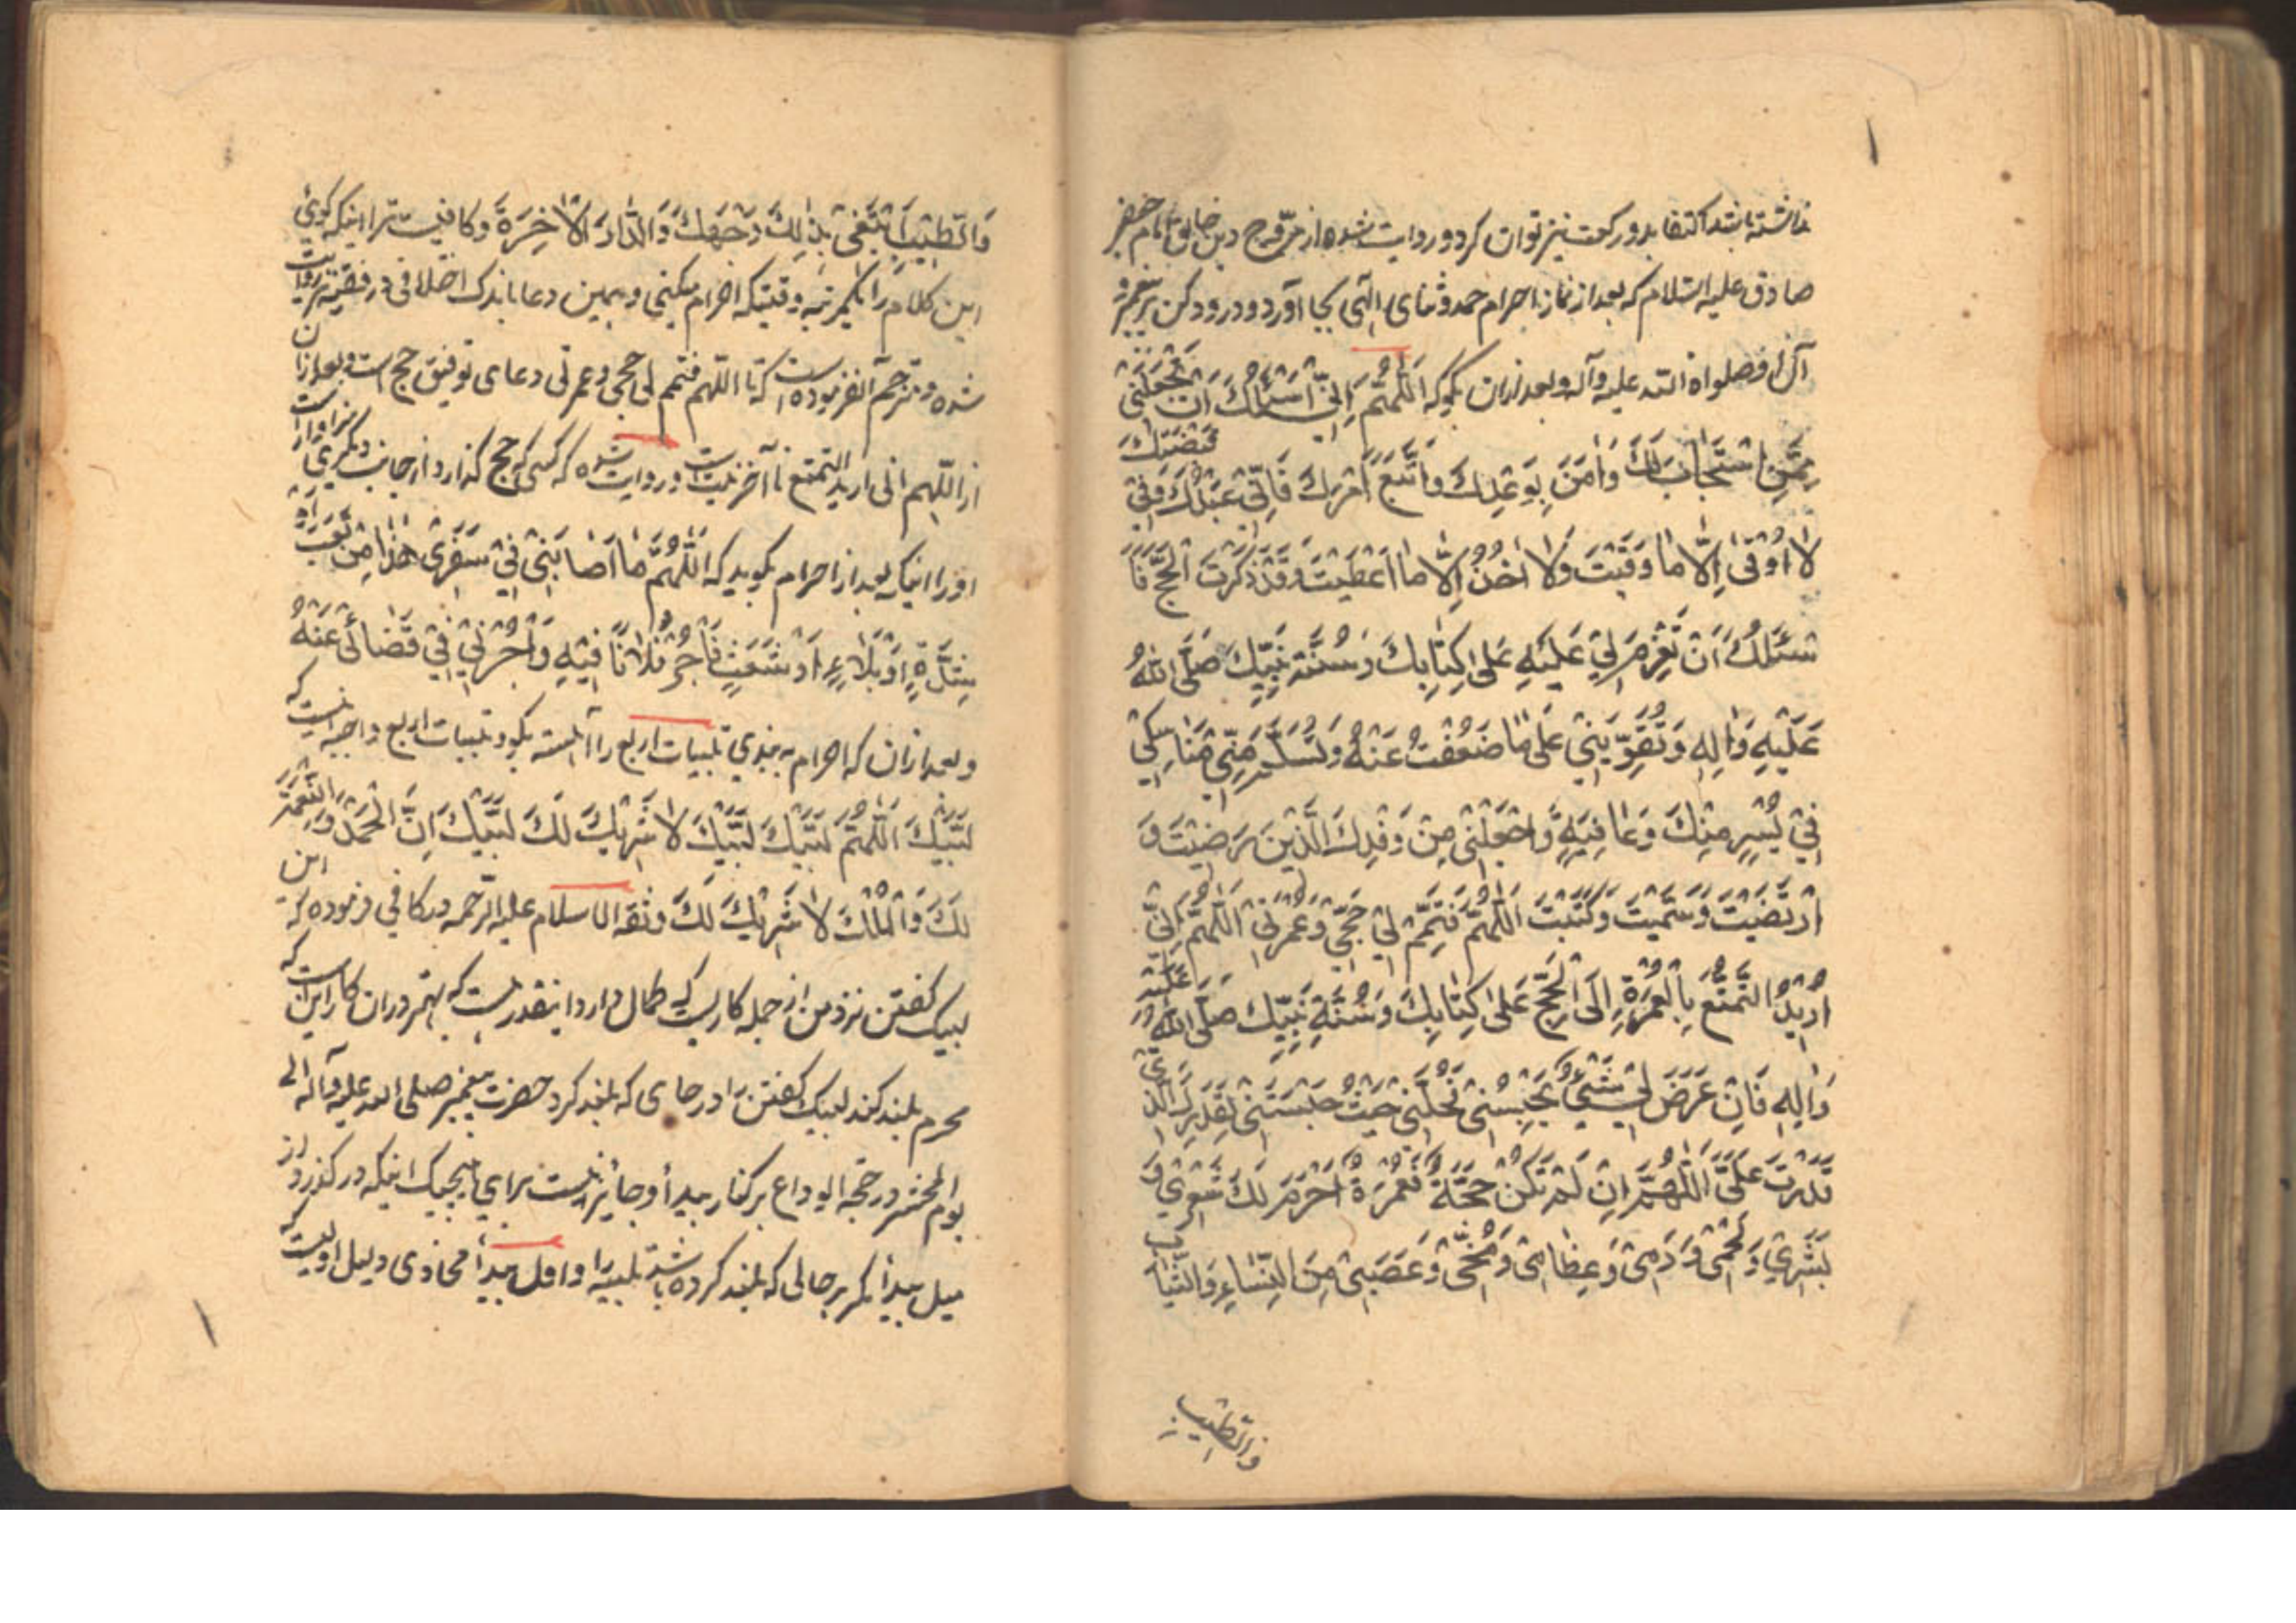 نداشته باشد اکتفا بدو رکعت نیز توان کرد و روایت شده از مروج دین خالق انام جعفر
صادق علیه السلام که بعد از نماز احرام حمد و ثنای الهی بجا آورد و درود کن بر پیغمبر و
آل او صلواة الله علیه و آله و بعد ازان بگو که اَللّٰهُمَّ اِنِّی اَسْئَلُكَ اَنْ تَجْعَلَنِی
مِمَّنِ اسْتَجَابَ لَكَ وَاٰمَنَ بِوَعْدِكَ وَاتَّبَعَ اَمْرَكَ فَاِنِّی عَبْدُكَ وَفِی قَبْضَتِكَ
لَا اُوْقٰی اِلَّا مَا وَقَیْتَ وَلَا اٰخُذُ اِلَّا مَا اَعْطَیْتَ وَقَدْ ذَكَرْتَ الْحَجَّ فَاَ
سْئَلُكَ اَنْ تَعْزِمَ لِی عَلَیْهِ عَلٰی كِتَابِكَ وَسُنَّةِ نَبِیِّكَ صَلَّی اللّٰهُ
عَلَیْهِ وَاٰلِهِ وَتُقَوِّیَنِی عَلٰی مَا ضَعُفْتُ عَنْهُ وَتَسَلَّمَ مِنِّی مَنَاسِكِی
فِی یُسْرٍ مِنْكَ وَعَافِیَةٍ وَاجْعَلْنِی مِنْ وَفْدِكَ الَّذِیْنَ رَضِیْتَ وَ
ارْتَضَیْتَ وَسَمَّیْتَ وَكَتَبْتَ اَللّٰهُمَّ فَتَمِّمْ لِی حَجِّی وَعُمْرَتِی اَللّٰهُمَّ اِنِّی
اُرِیْدُ التَّمَتُّعَ بِالْعُمْرَةِ اِلَی الْحَجِّ عَلٰی كِتَابِكَ وَسُنَّةِ نَبِیِّكَ صَلَّی اللّٰهُ عَلَیْهِ
وَاٰلِهِ فَاِنْ عَرَضَ لِی شَیْءٌ یَحْبِسُنِی فَحُلَّنِی حَیْثُ حَبَسْتَنِی بِقَدَرِكَ الَّذِی
قَدَّرْتَ عَلَیَّ اَللّٰهُمَّ اِنْ لَمْ تَكُنْ حَجَّةً فَعُمْرَةً اُحْرِمَ لَكَ شَعْرِی وَ
بَشَرِی وَلَحْمِی وَدَمِی وَعِظَامِی وَمُخِّی وَعَصَبِی مِنَ النِّسَاءِ وَالثِّیَابِ
والطیب
وَالطِّیْبِ اَبْتَغِی بِذٰلِكَ وَجْهَكَ وَالدَّارَ الْاٰخِرَةَ و کافیست ترا اینکه گوئی
این کلام را یکمرتبه وقتیکه احرام میکنی و همین دعا باندک اختلافی در فقیه نیز روایت
شده و مترجم آن فرموده است که تا اللهم فتمم لی حجی و عمرتی دعای توفیق حج است و بعد ازان
از اللهم انی ارید التمتع تا آخر نیت است و روایت شده که کسی که حج گذارد از جانب دیگری سزاوار است
او را اینکه بعد از احرام بگوید که اَللّٰهُمَّ مَا اَصَابَنِی فِی سَفَرِی هٰذَا مِنْ تَعَبٍ اَوْ
شِدَّةٍ اَوْ بَلَاءٍ اَوْ شَعَثٍ فَأْجُرْ فُلَانًا فِیْهِ وَأْجُرْنِی فِی قَضَائِی عَنْهُ
و بعد ازان که احرام به بندی تلبیات اربع را آهسته بگو و تلبیات اربع واجبه اینست که
لَبَّیْكَ اَللّٰهُمَّ لَبَّیْكَ لَبَّیْكَ لَا شَرِیْكَ لَكَ لَبَّیْكَ اِنَّ الْحَمْدَ وَالنِّعْمَةَ
لَكَ وَالْمُلْكَ لَا شَرِیْكَ لَكَ و ثقه الاسلام علیه الرحمه در کافی فرموده که این
لبیک گفتن نزد من از جمله کاریست که کمال دارد اینقدر هست که بهتر در ان کار این است که
محرم بلند کند لبیک گفتن را در جای که بلند کرد حضرت پیغمبر صلی الله علیه وآله الی
یوم المحشر در حجه الوداع بر کنار بیدأ و جائز نیست برای هیچیک اینکه در گذرد از
میل بیدأ مگر بر حالی که بلند کرده باشد تلبیه را و اول بیدأ محاذی و میل اولیست که